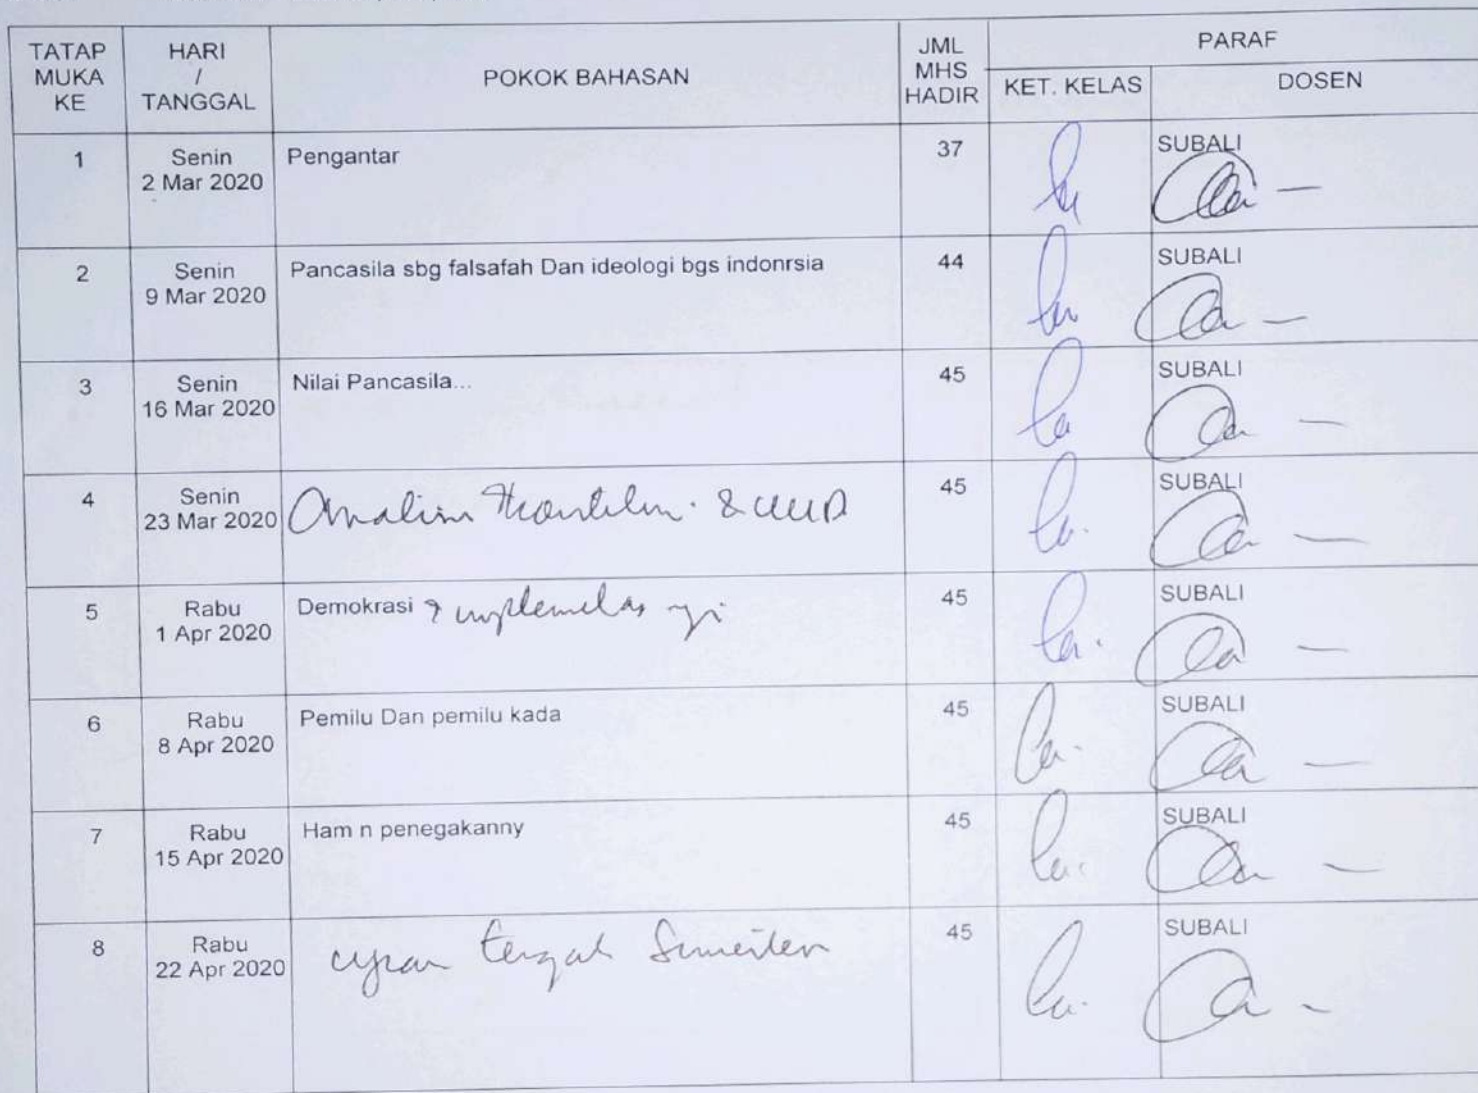 TATAP MUKA KE
HARI / TANGGAL
POKOK BAHASAN
JML MHS HADIR
PARAF
KET. KELAS
DOSEN
1
Senin
2 Mar 2020
Pengantar
37
SUBALI
2
Senin
9 Mar 2020
Pancasila sbg falsafah Dan ideologi bgs indonrsia
44
SUBALI
3
Senin
16 Mar 2020
Nilai Pancasila...
45
SUBALI
4
Senin
23 Mar 2020
& UUD
45
SUBALI
5
Rabu
1 Apr 2020
Demokrasi
45
SUBALI
6
Rabu
8 Apr 2020
Pemilu Dan pemilu kada
45
SUBALI
7
Rabu
15 Apr 2020
Ham n penegakanny
45
SUBALI
8
Rabu
22 Apr 2020
ujian tengah Semester
45
SUBALI